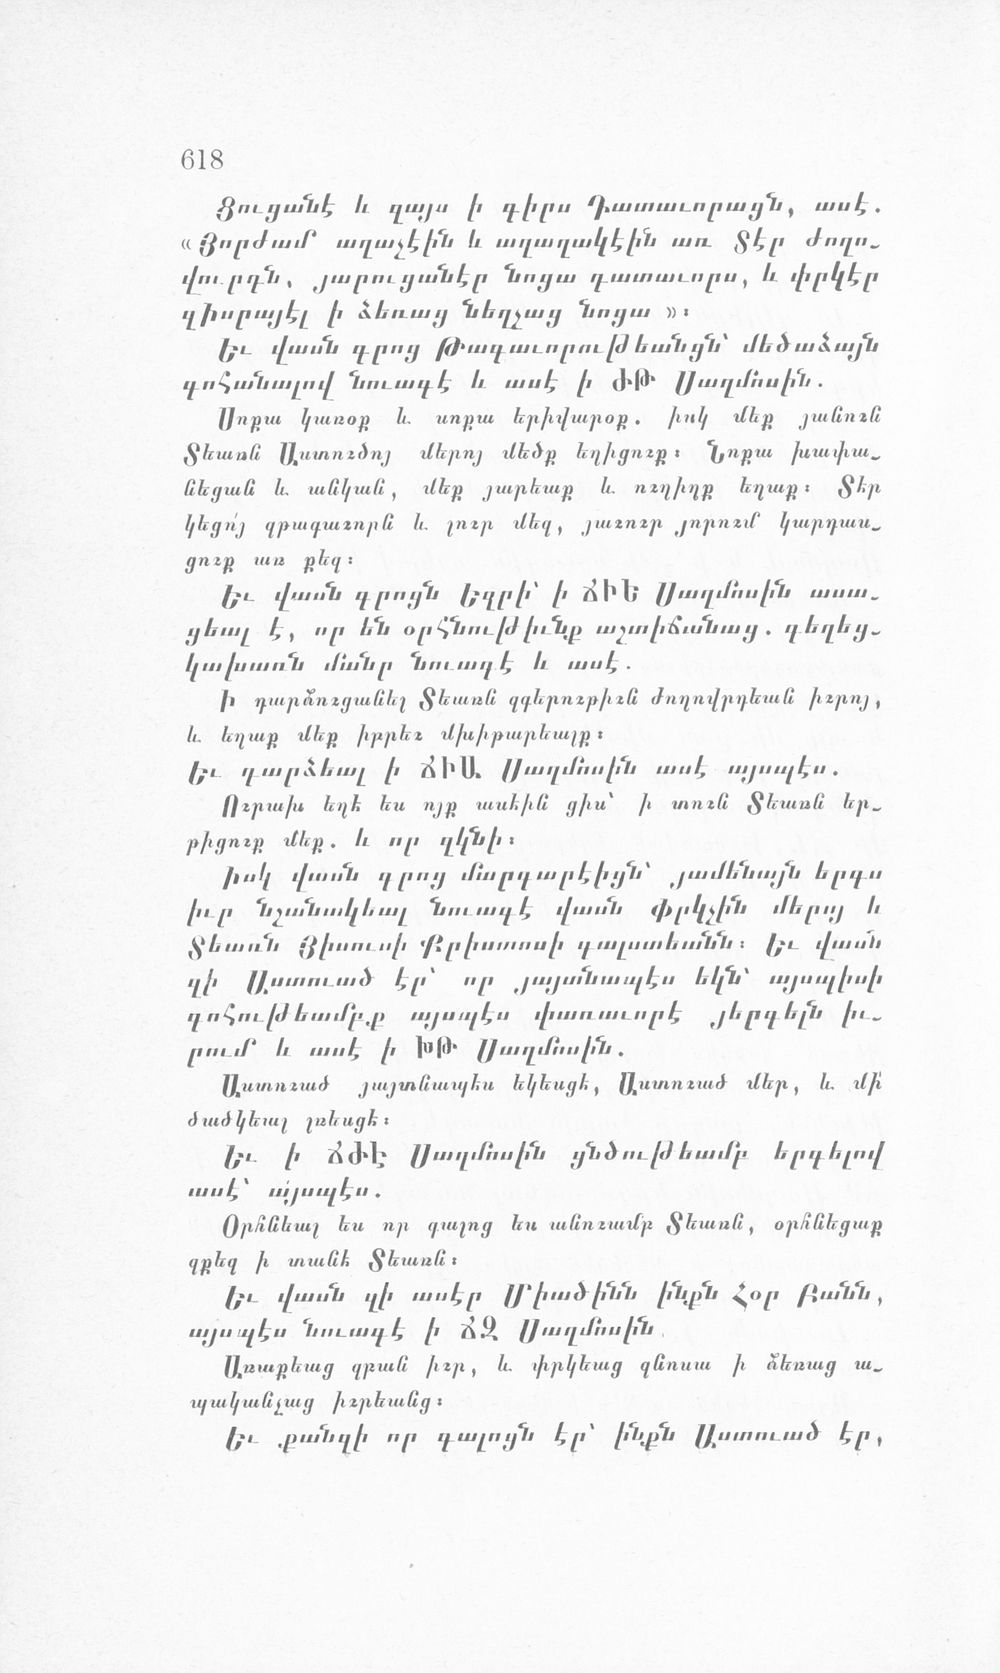 618
Ցուցանէ և զայս ի գիրս Դատաւորացն, ասէ.
« Յորժամ աղաչէին և աղաղակէին առ Տէր ժողո֊
վուրդն, յարուցանէր նոցա դատաւորս, և փրկէր
զԻսրայէլ ի ձեռաց նեղչաց նոցա »։
Եւ վասն գրոց Թագաւորութեանցն՝ մեծաձայն
գոհանալով նուագէ և ասէ ի ԺԹ Սաղմոսին.
Սոքա կառօք և սոքա երիվարօք. իսկ մեք յանուն
Տեառն Աստուծոյ մերոյ մեծք եղիցուք։ Նոքա խափա֊
նեցան և անկան, մեք յարեաք և ուղիղք եղաք։ Տէր
կեցո՛յ զթագաւորն և լուր մեզ, յաւուր յորում կարդաս֊
ցուք առ քեզ։
Եւ վասն գրոցն Եզրի՝ ի ՃԻԵ Սաղմոսին ասա֊
ցեալ է, որ են օրհնութիւնք աշտիճանաց. գեղեց֊
կախառն մանր նուագէ և ասէ.
Ի դարձուցանել Տեառն զգերութիւն ժողովրդեան իւրոյ,
և եղաք մեք իբրեւ մխիթարեալք։
Եւ դարձեալ ի ՃԻԱ Սաղմոսին ասէ այսպէս.
Ուրախ եղէ ես ոյք ասէին ցիս՝ ի տուն Տեառն եր֊
թիցուք մեք. և որ զկնի։
Իսկ վասն գրոց մարգարէիցն՝ յամենայն երգս
իւր նշանակեալ նուագէ վասն Փրկչին մերոյ և
Տեառն Յիսուսի Քրիստոսի գալստեանն։ Եւ վասն
զի Աստուած էր՝ որ յայտնապէս եկն՝ այսպիսի
գոհութեամբք այսպէս փառաւորէ յերգելն իւ֊
րում և ասէ ի ԽԹ Սաղմոսին.
Աստուած յայտնապէս եկեսցէ, Աստուած մեր, և մի՛
ծածկեալ լռեսցէ։
Եւ ի ՃԺԷ Սաղմոսին ցնծութեամբ երգելով
ասէ՝ այսպէս.
Օրհնեալ ես որ գալոց ես անուամբ Տեառն, օրհնեցաք
զքեզ ի տանէ Տեառն։
Եւ վասն զի ասէր Միածինն ինքն Հօր Բանն,
այսպէս նուագէ ի ՃԶ Սաղմոսին
Առաքեաց զբան իւր, և փրկեաց զնոսա ի ձեռաց ա֊
պականչաց իւրեանց։
Եւ քանզի որ գալոցն էր՝ ինքն Աստուած էր,